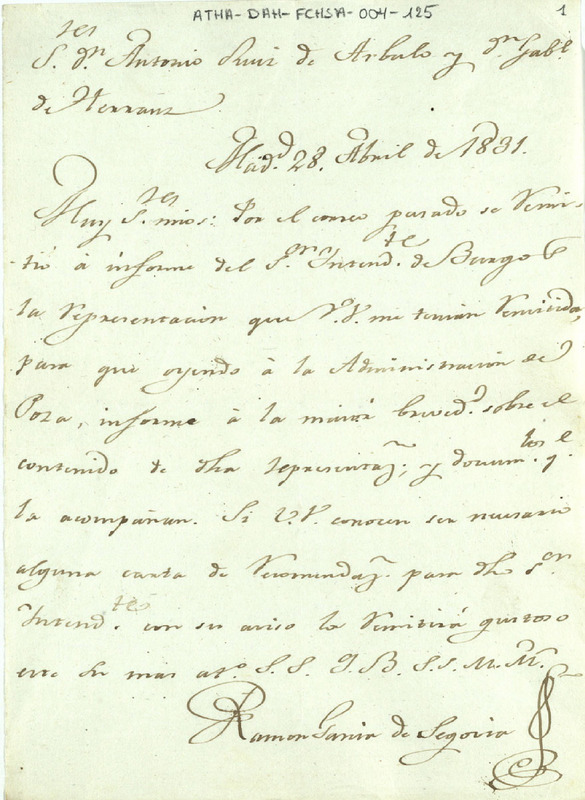 ATHA-DAH-FCHSA-004-125
1
S.res dn Antonio Ruiz de Arbulo y dn Gab.l
de Herranz
Mad.d 28. Abril de 1831.
Muy S.res mios: Por el correo pasado se remi-
tió à informe del S.or Intend.te de Burgos
la representacion que V.V. me tenian remitida,
para que oyendo à la Administracion de
Poza, informe à la mayor breved.d sobre el
contenido de dha representaz.n y docum.tos q.e
la acompañan. Si V.V. conocen ser necesario
alguna carta de recomendaz.n para dho S.or
Intend.te con su aviso la remitirá gustoso
este su mas at.o S.S. Q. B. S.S. M.M.
Ramon Garcia de Segovia